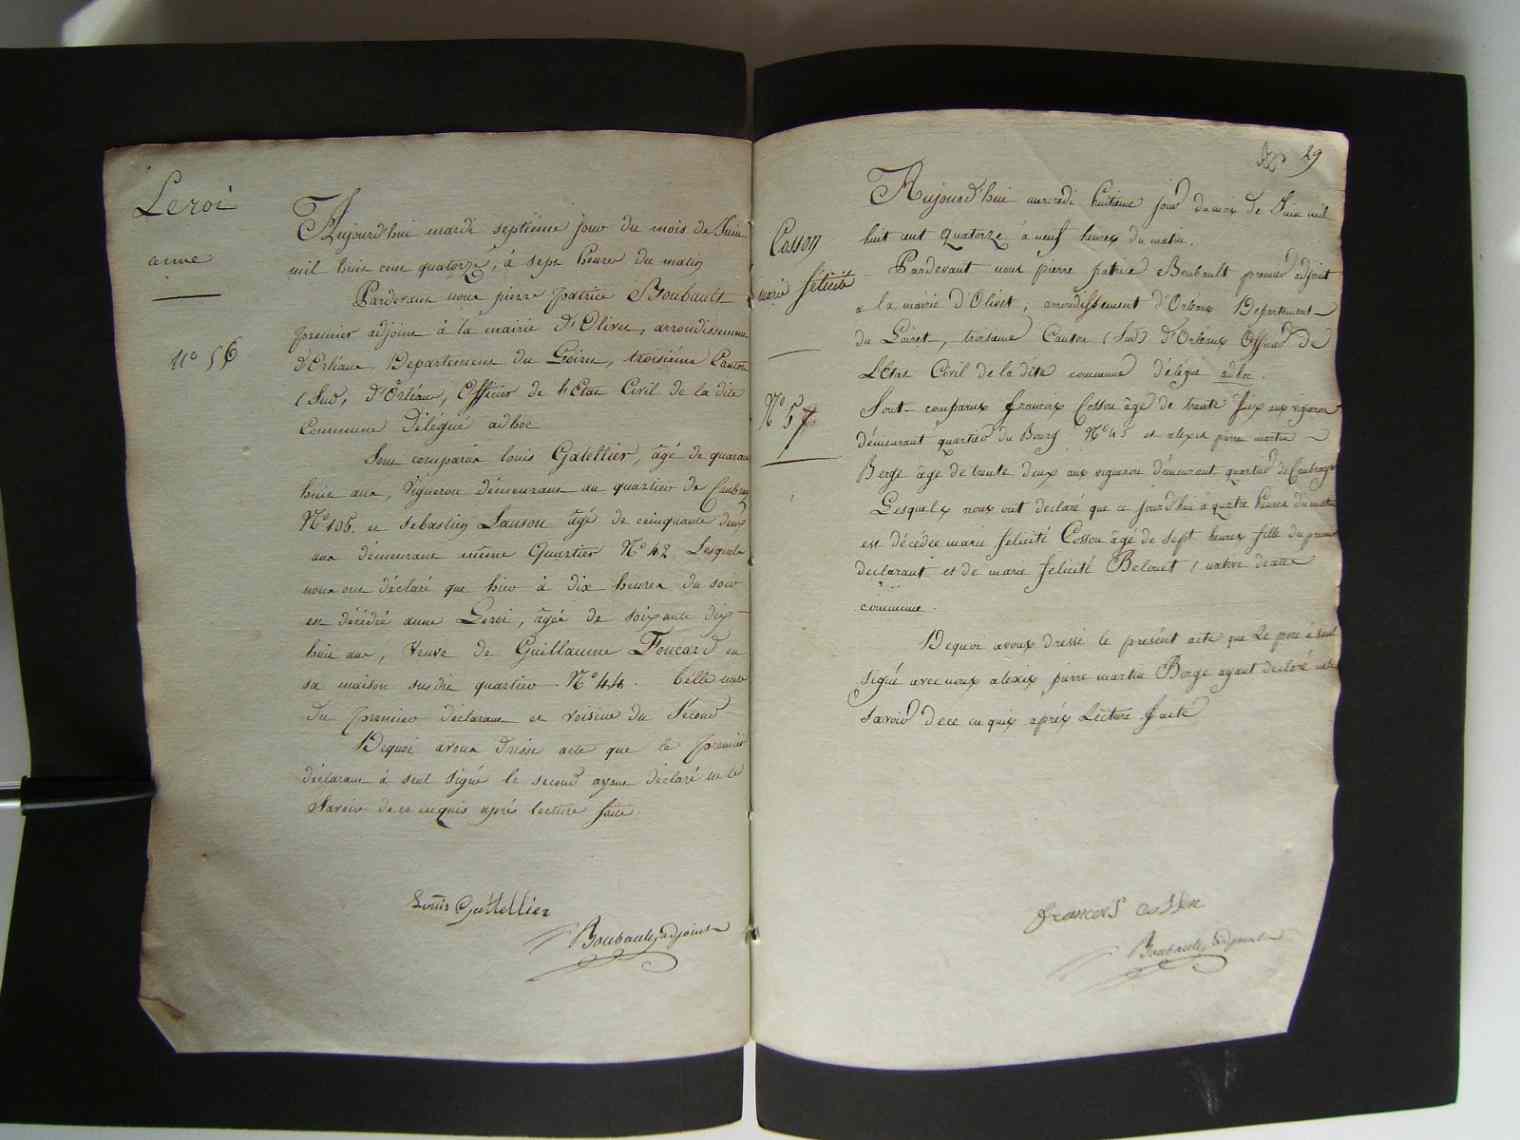 Leroi
anne
N° 56
Aujourd'hui mardi septième jour du mois de Juin
mil huit cent quatorze, à sept heures du matin
Pardevant nous pierre patrice Boubault
premier adjoint à la mairie d'Olivet, arrondissement
d'Orléans, Departement du Loiret, troisième Canton
(Sud) d'Orléans, Officier de l'Etat Civil de la dite
Commune Délégué adhoc
Sont comparus louis Gatellier, âgé de quarante
huit ans, vigneron démeurant au quartier de
N° 105. et sebastien Lanson âgé de cinquante deux
ans démeurant même Quartier N° 42 Lesquels
nous ont déclaré que hier à dix heures du soir
est décédée anne Leroi, âgée de soixante dix
huit ans, veuve de Guillaume Foucard en
sa maison susdit quartier N° 44. belle mere
du premier déclarant et voisine du Second
Dequoi avons dressé acte que le premier
déclarant à seul signé le second ayant déclaré ne le
savoir de ce enquis après lecture faite
Louis Gattellier
Boubault, adjoint
29
Cosson
marie félicité
N° 57
Aujourd'hui mercredi huitieme jour du mois de Juin mil
huit cent quatorze à neuf heures du matin.
Pardevant nous pierre patrice Boubault premier adjoint
a la mairie d'Olivet, arrondissement d'Orléans Departement
du Loiret, troisieme Canton (Sud) d'Orléans Officier de
L'Etat Civil de la dite commune délégué adhoc.
Sont comparus francois Cosson âgé de trente six ans vigneron
démeurant quartier du Bourg N° 45 et alexis pierre martin
Berge âgé de trente deux ans vigneron démeurant quartier de
Lesquels nous ont declaré que ce jourd'hui à quatre heures du matin
est décédée marie félicité Cosson âgé de sept heures fille du premier
declarant et de marie félicité Belouet native de cette
commune.
Dequoi avons dressé le présent acte que le pere à seul
signé avec nous alexis pierre martin Berge ayant declaré ne le
savoir de ce enquis après Lecture faite
francois cosson
Boubault, adjoint